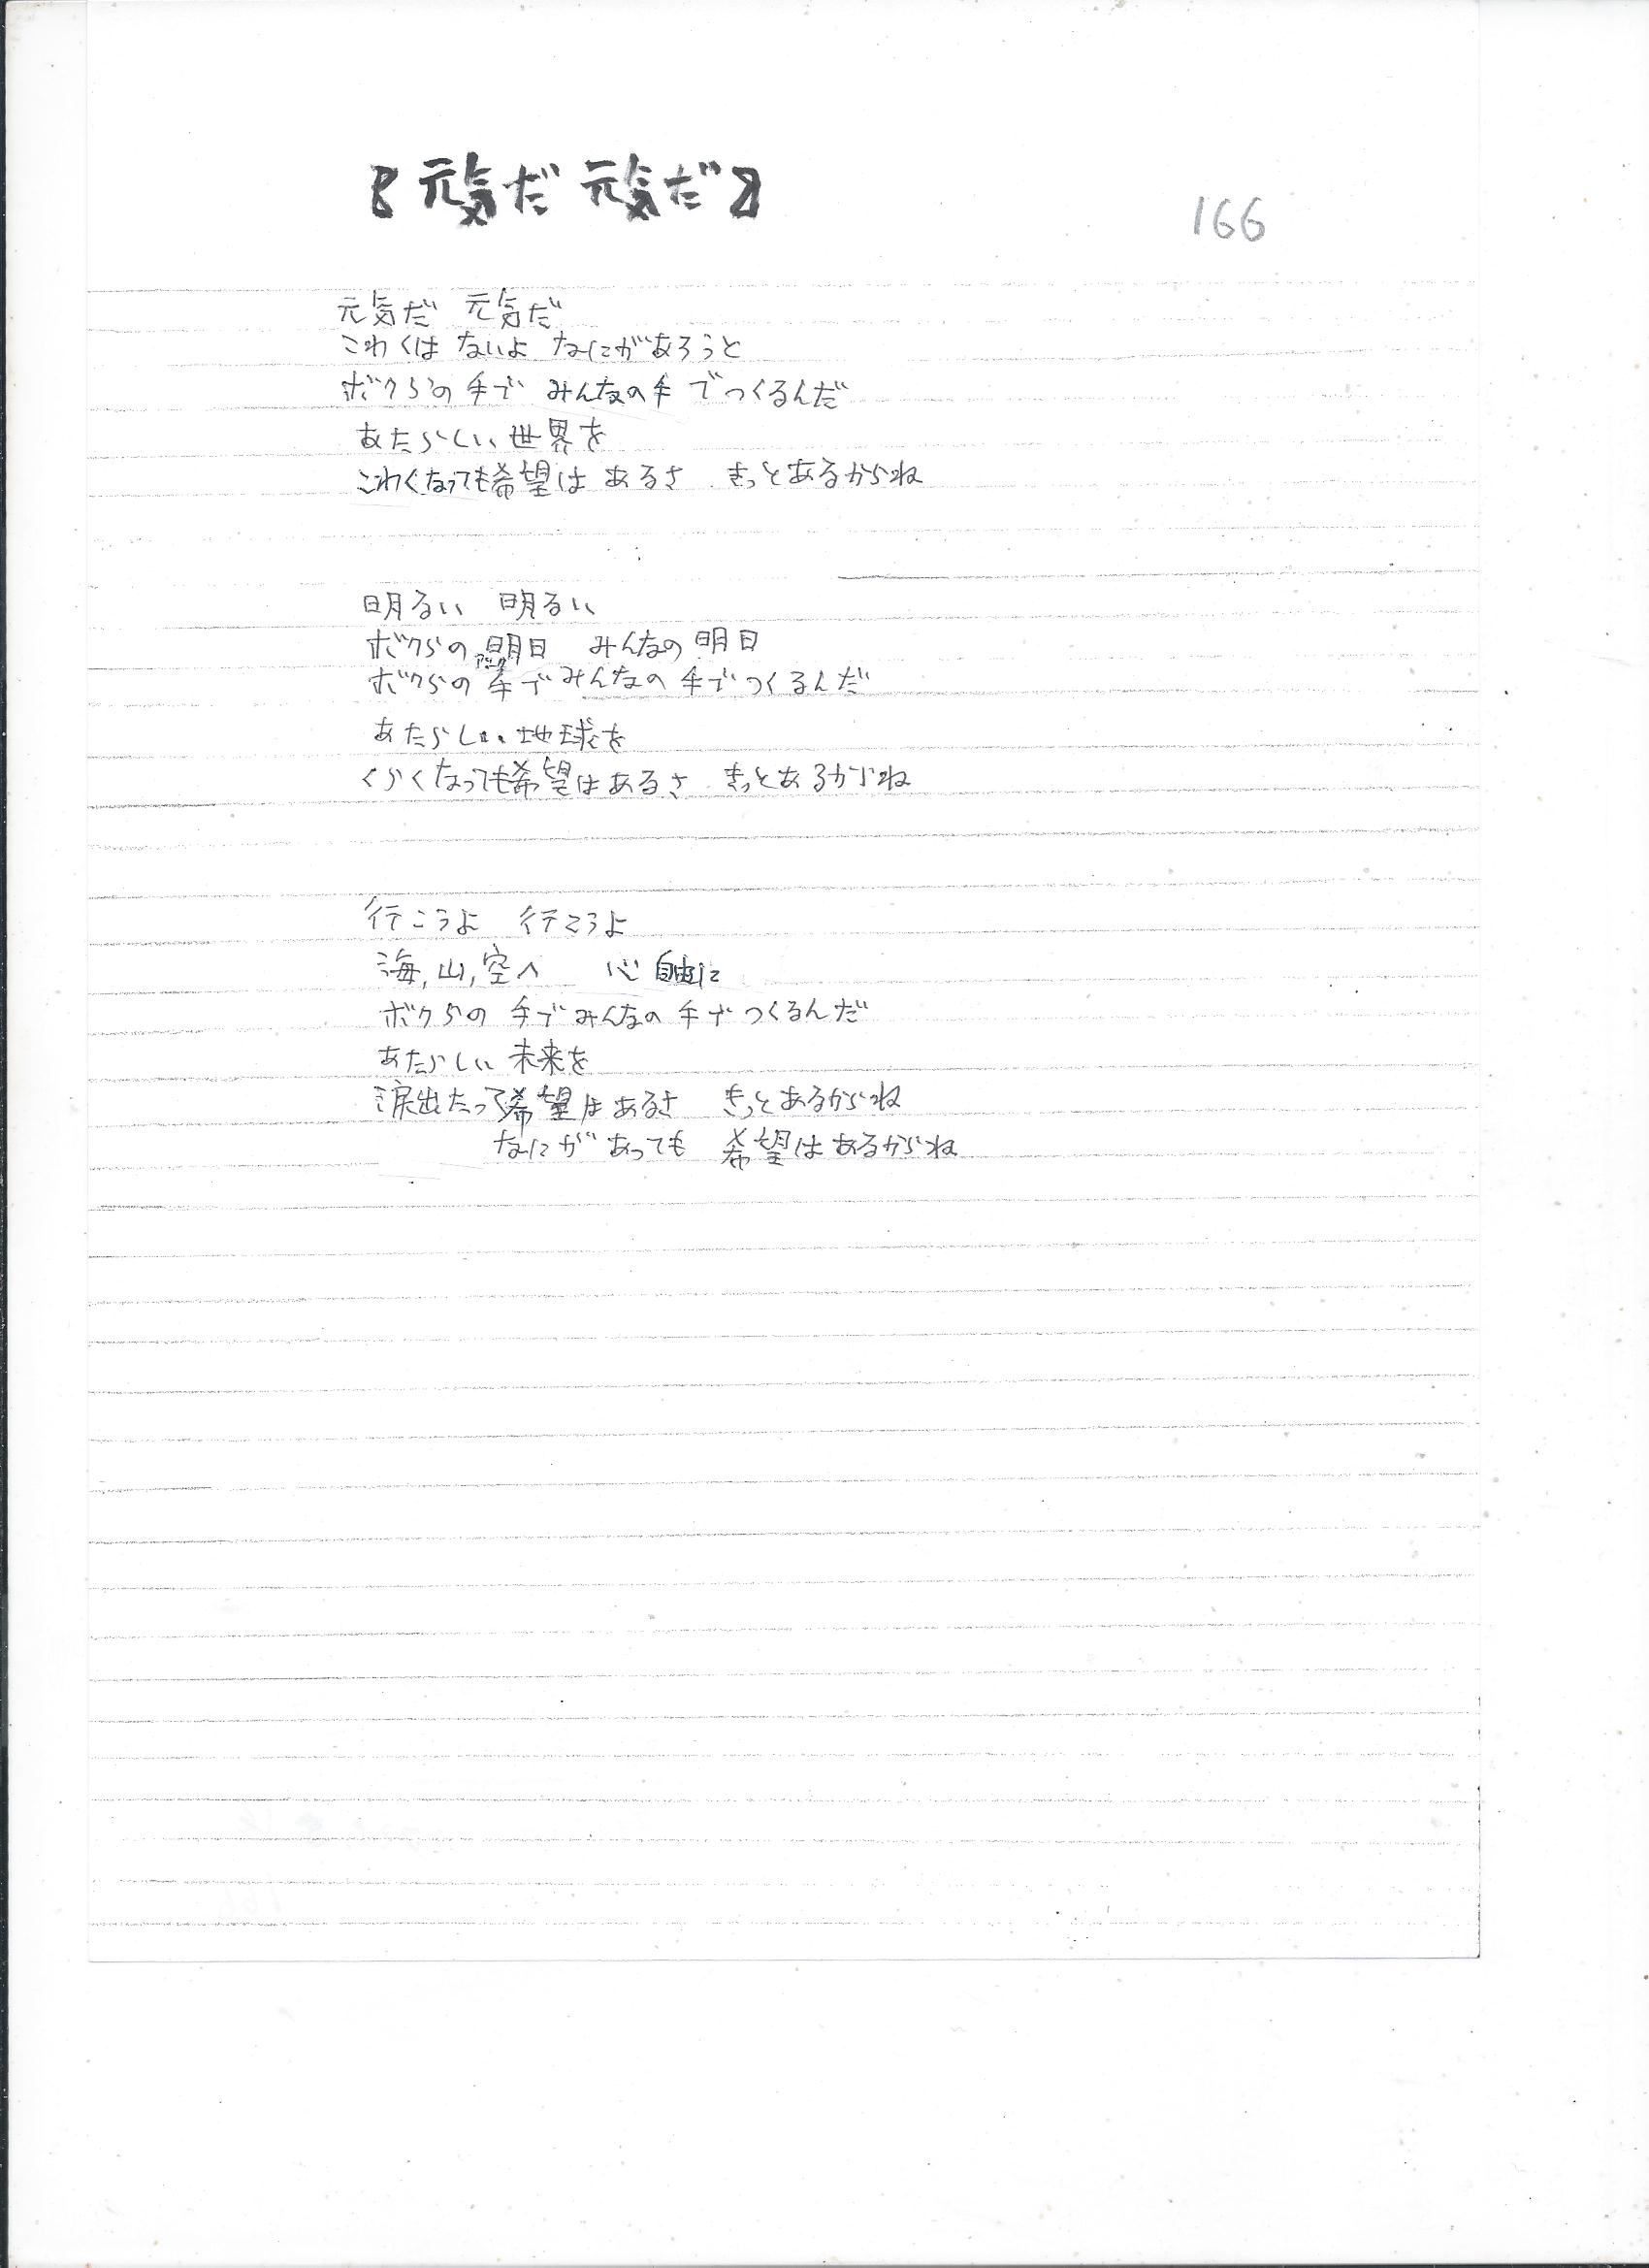 『元気だ 元気だ』
166
元気だ 元気だ
こわくは ないよ なにがあろうと
ボクらの 手で みんなの手 でつくるんだ
あたらしい 世界を
こわくなっても希望は あるさ きっとあるからね
明るい 明るい
ボクらの 明日 みんなの 明日
ボクらの 手で みんなの 手で つくるんだ
あたらしい 地球を
くらくなっても希望はあるさ きっとあるからね
行こうよ 行こうよ
海,山,空へ 心 自由に
ボクらの 手で みんなの 手で つくるんだ
あたらしい 未来を
涙出たって希望はあるさ きっとあるからね
なにが あっても 希望は あるからね